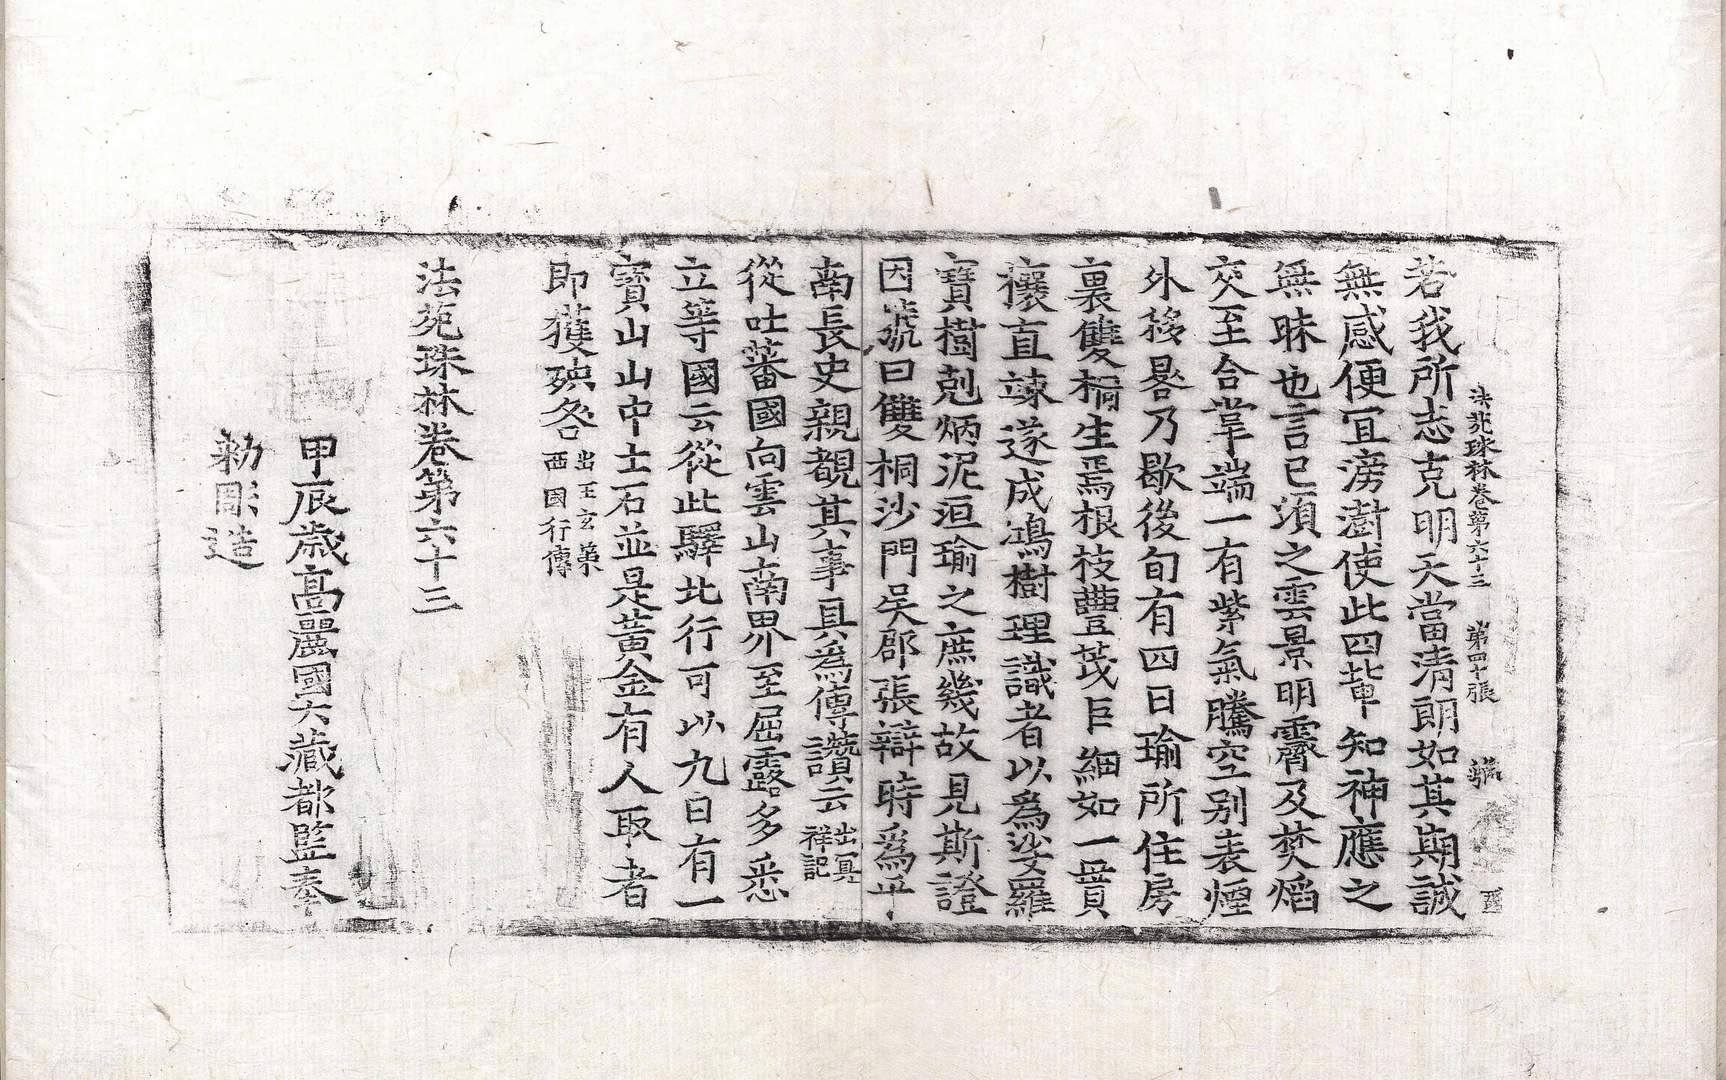 法苑珠林卷第六十三 第四十張
若我所志克明天當清朗如其期誠
無感便宜滂澍使此四輩知神應之
無昧也言已須之雲景明霽及焚焰
交至合掌端一有紫氣騰空別表煙
外移晷乃歇後旬有四日瑜所住房
裏雙桐生焉根枝豐茂巨細如一貫
穰直竦遂成鴻樹理識者以為娑羅
寶樹剋炳泥洹瑜之庶幾故見斯證
因號曰雙桐沙門吳郡張辯時為平
南長史親覩其事具為傳讚云
出冥
祥記
從吐蕃國向雲山南界至屈露多悉
立等國云從此驛北行可以九日有一
寶山山中土石並是黃金有人取者
即獲殃咎
出王玄策
西國行傳
法苑珠林卷第六十三
甲辰歲高麗國大藏都監奉
勅彫造